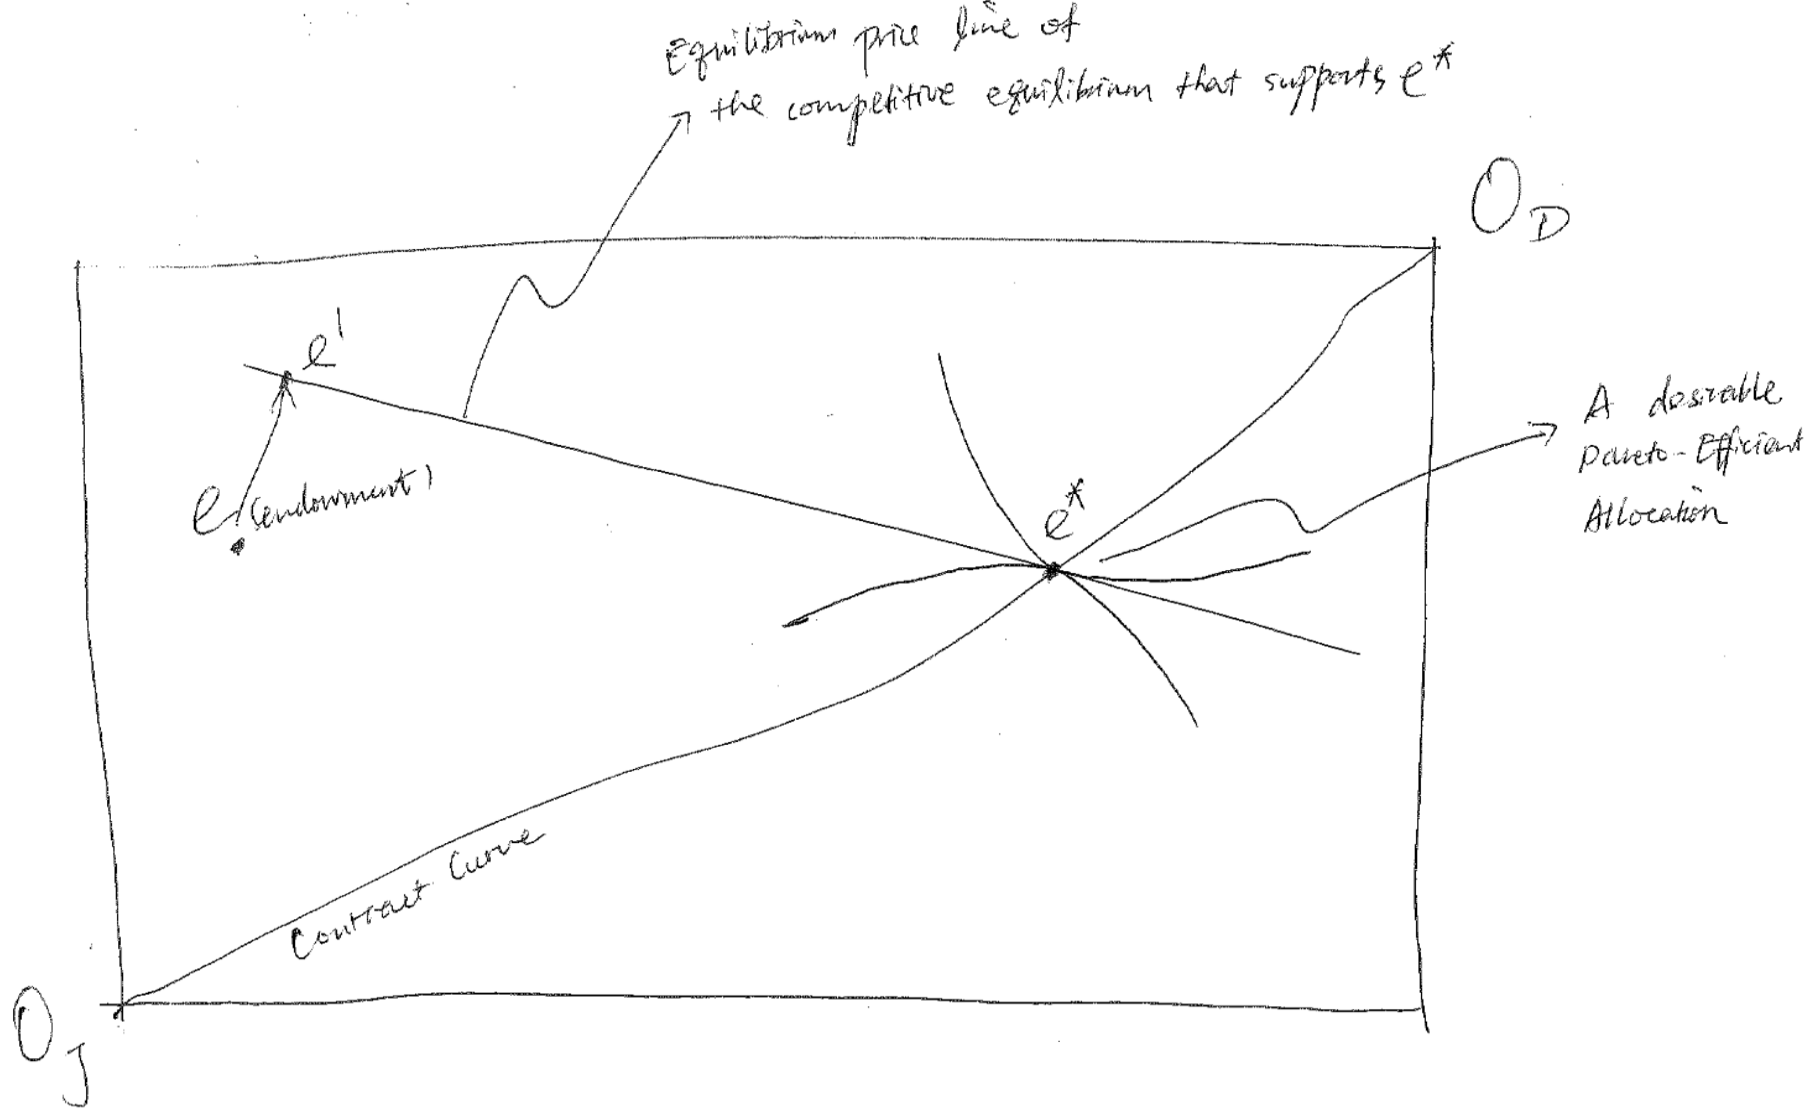 Equilibrium price line of
the competitive equilibrium that supports e*
O_D
e'
A desirable
Pareto-Efficient
Allocation
e (endowment)
e*
Contract Curve
O_J